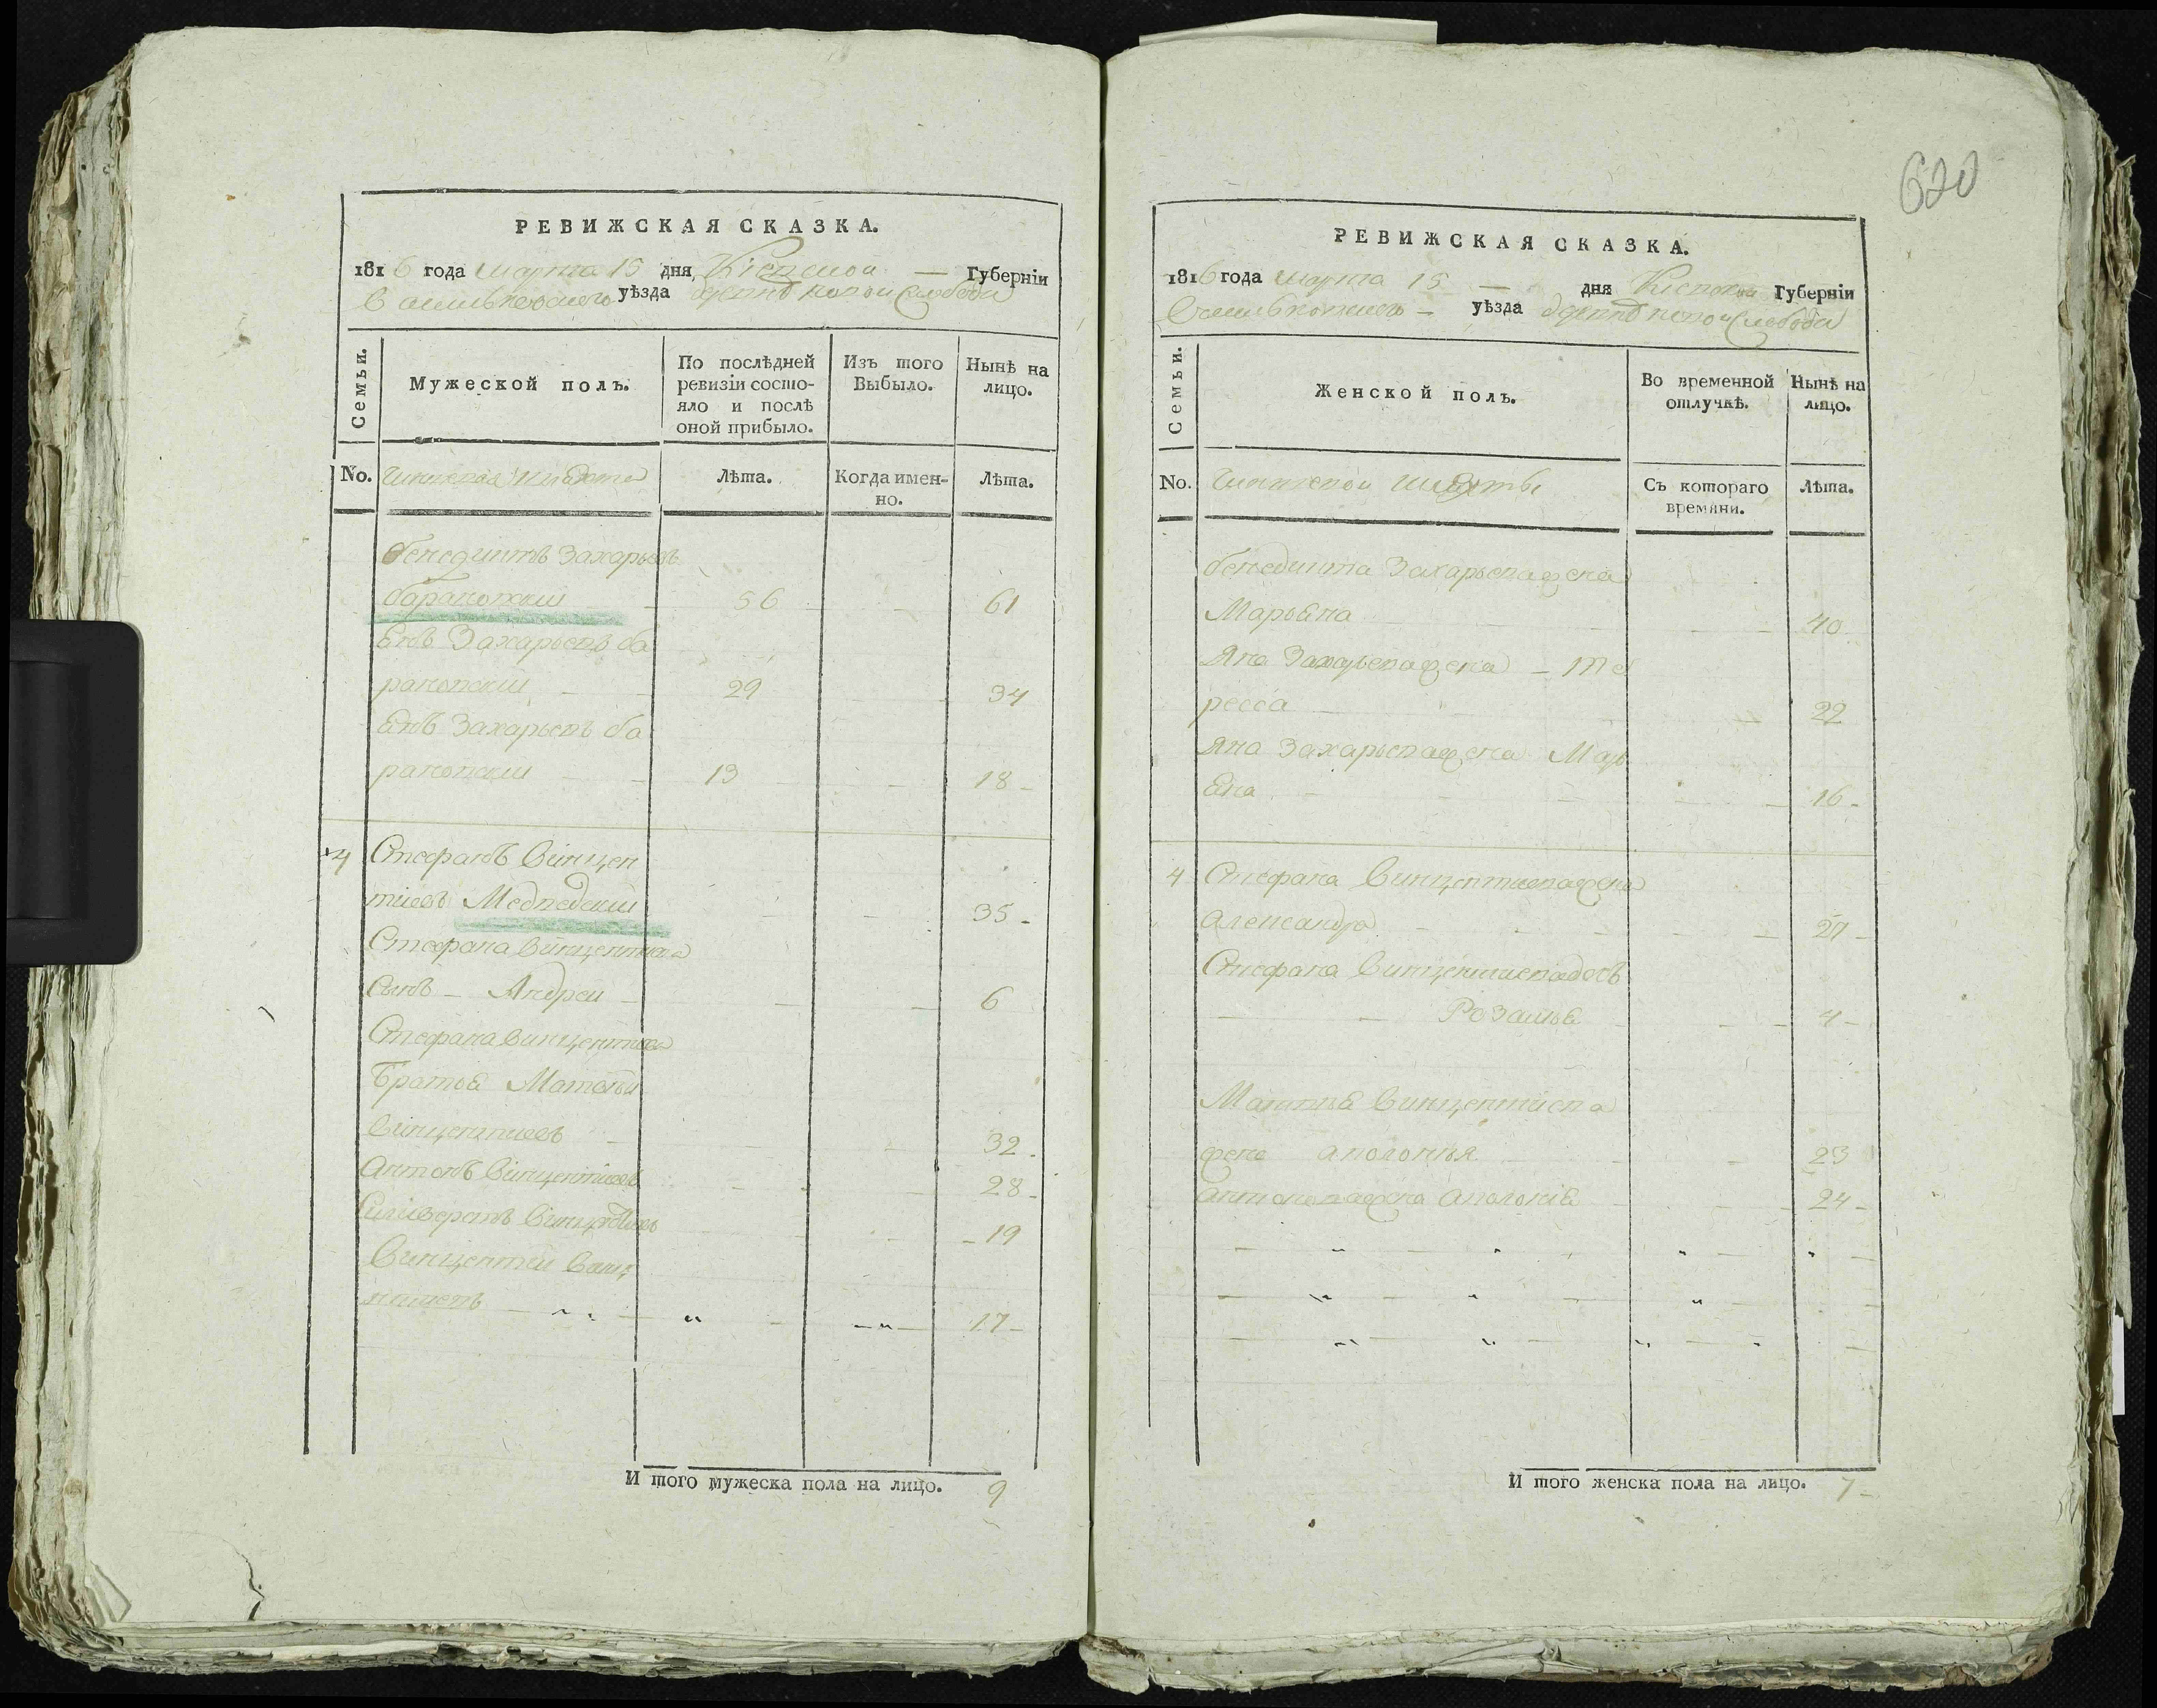 620
РЕВИЖСКАЯ СКАЗКА.
1816 года марта 15 дня Кіевской — Губерніи
Васильковского уѣзда Слободы
Семьи.
Мужеской полъ.
По послѣдней ревизіи состо-
яло и послѣ
оной прибыло.
Изъ того
Выбыло.
Нынѣ на
лицо.
No.
Лѣта.
Когда имен-
но.
Лѣта.
бенедиктъ Захарьевъ
барановскии — 56 — 61
Янъ Захарьевъ ба
рановскии — 29 34
Янъ Захарьевъ ба
рановскии — 13 — 18 -
4 Стефанъ Вінцен
тіевъ Медведскии — 35 -
Стефана Винцентиева
Сынъ — Андреи — 6
Стефана Винцентиева
Братья Матвѣи
Винцентиевъ — 32 -
Антонъ Вінцентиевъ — 28 -
Силиверстъ — 19
Винцентии — 17 -
И того мужеска пола на лицо. 9
РЕВИЖСКАЯ СКАЗКА.
1816 года марта 15 — дня Кіевской Губерніи
Васильковского — уѣзда Слободы
Семьи.
Женской полъ.
Во временной
отлучкѣ.
Нынѣ на
лицо.
No.
Съ котораго
времяни.
Лѣта.
бенедикта Захарьева жена
Марьяна — 40
Яна Захарьева жена — Те
ресса — 22
Яна Захарьева жена Марь
яна — 16 -
4 Стефана Винцентиева жена
Александра — 27 -
Стефана Винцентиева дочь
— Розалья — 4 -
Матвѣя Винцентиева
жена аполонья — 23
антона жена Аполонія — 24 -
И того женска пола на лицо. 7 -